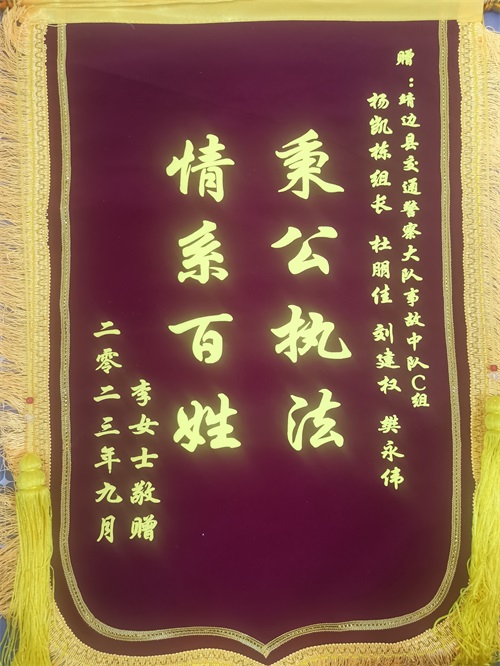 赠：靖边县交通警察大队事故中队C组
杨凯栋组长 杜朋佳 刘建权 樊永伟
秉公执法
情系百姓
李女士敬赠
二零二三年九月